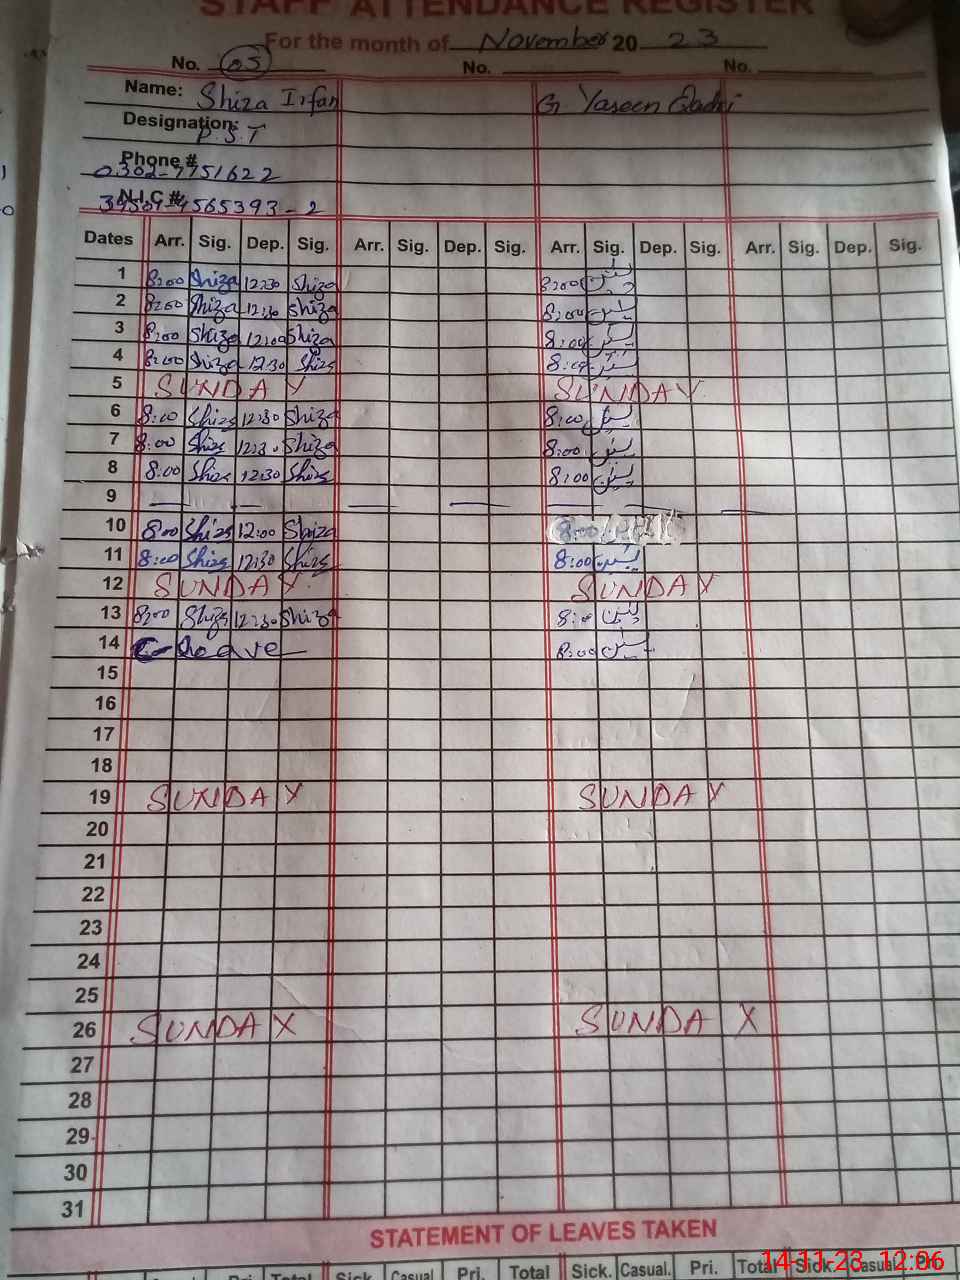 STAFF ATTENDANCE REGISTER
For the month of November 20 23
No. 05 No. No.
Name: Shiza Irfan G. Yaseen Qadri
Designation: P.S.T
Phone #
0302-7751622
N.I.C #
Dates Arr. Sig. Dep. Sig. Arr. Sig. Dep. Sig. Arr. Sig. Dep. Sig. Arr. Sig. Dep. Sig.
1 8:00 Shiza 12:30 Shiza 8:00 یسین
2 8:00 Shiza 12:30 Shiza 8:00 یسین
3 8:00 Shiza 12:00 Shiza 8:00 یسین
4 8:00 Shiza 12:30 Shiza 8:00 یسین
5 SUNDAY SUNDAY
6 8:00 Shiza 12:30 Shiza 8:00 یسین
7 8:00 Shiza 12:30 Shiza 8:00 یسین
8 8:00 Shiza 12:30 Shiza 8:00 یسین
9 — — — — — — —
10 8:00 Shiza 12:00 Shiza 8:00
11 8:00 Shiza 12:30 Shiza 8:00 یسین
12 SUNDAY SUNDAY
13 8:00 Shiza 12:30 Shiza 8:00 یسین
14 C-Leave 8:00 یسین
15
16
17
18
19 SUNDAY SUNDAY
20
21
22
23
24
25
26 SUNDAY SUNDAY
27
28
29
30
31
STATEMENT OF LEAVES TAKEN
Casual Pri. Total Sick. Casual Pri. Total Sick. Casual. Pri. Total Sick. Casual Pri.
14-11-23 12:06